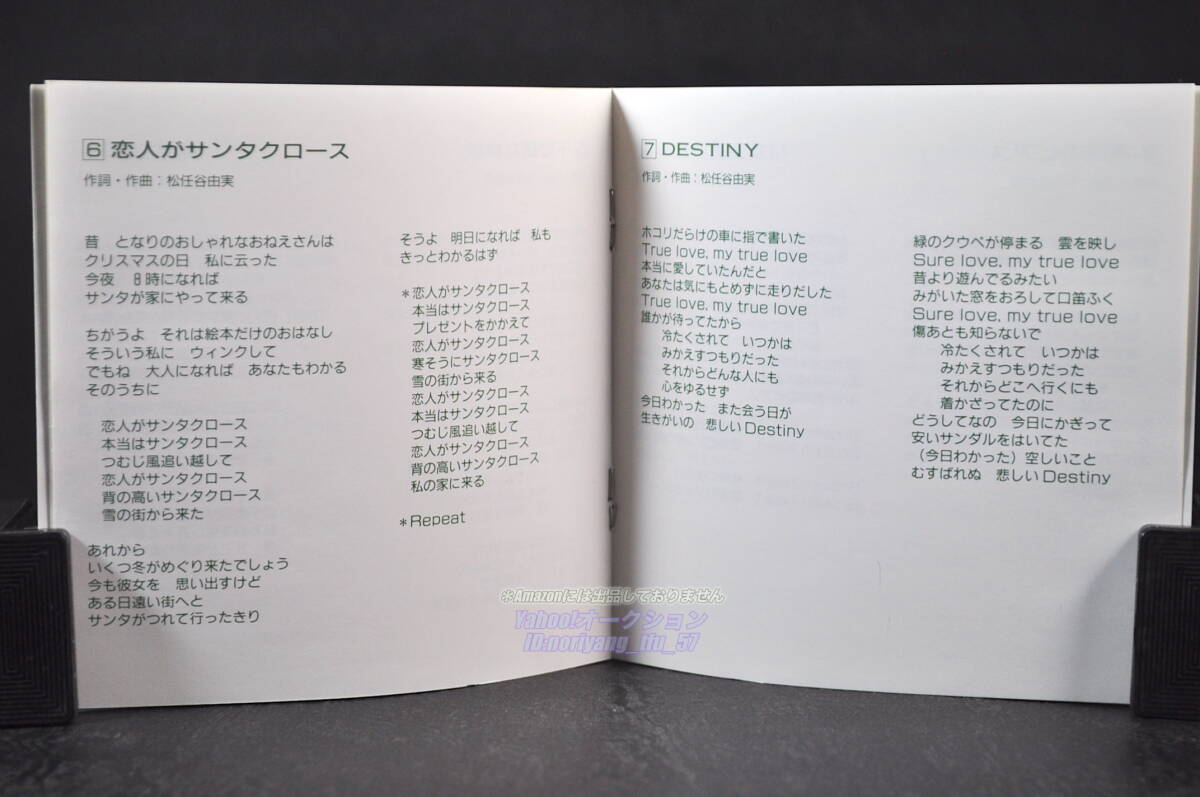 6 恋人がサンタクロース
作詞・作曲：松任谷由実
昔　となりのおしゃれなおねえさんは
クリスマスの日　私に云った
今夜　8時になれば
サンタが家にやって来る
ちがうよ　それは絵本だけのおはなし
そういう私に　ウィンクして
でもね　大人になれば　あなたもわかる
そのうちに
恋人がサンタクロース
本当はサンタクロース
つむじ風追い越して
恋人がサンタクロース
背の高いサンタクロース
雪の街から来た
あれから
いくつ冬がめぐり来たでしょう
今も彼女を　思い出すけど
ある日遠い街へと
サンタがつれて行ったきり
そうよ　明日になれば　私も
きっとわかるはず
＊恋人がサンタクロース
本当はサンタクロース
プレゼントをかかえて
恋人がサンタクロース
寒そうにサンタクロース
雪の街から来る
恋人がサンタクロース
本当はサンタクロース
つむじ風追い越して
恋人がサンタクロース
背の高いサンタクロース
私の家に来る
＊Repeat
7 DESTINY
作詞・作曲：松任谷由実
ホコリだらけの車に指で書いた
True love, my true love
本当に愛していたんだと
あなたは気にもとめずに走りだした
True love, my true love
誰かが待ってたから
冷たくされて　いつかは
みかえすつもりだった
それからどんな人にも
心をゆるせず
今日わかった　また会う日が
生きがいの　悲しいDestiny
緑のクウペが停まる　雲を映し
Sure love, my true love
昔より遊んでるみたい
みがいた窓をおろして口笛ふく
Sure love, my true love
傷あとも知らないで
冷たくされて　いつかは
みかえすつもりだった
それからどこへ行くにも
着かざってたのに
どうしてなの　今日にかぎって
安いサンダルをはいてた
（今日わかった）空しいこと
むすばれぬ　悲しいDestiny
※Amazonには出品しておりません
Yahoo!オークション
ID:noriyang_tfu_57